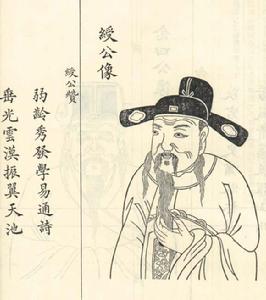 綬公像
綬公贊
弱齡秀發學易通詩
岳光雲漢振翼天池